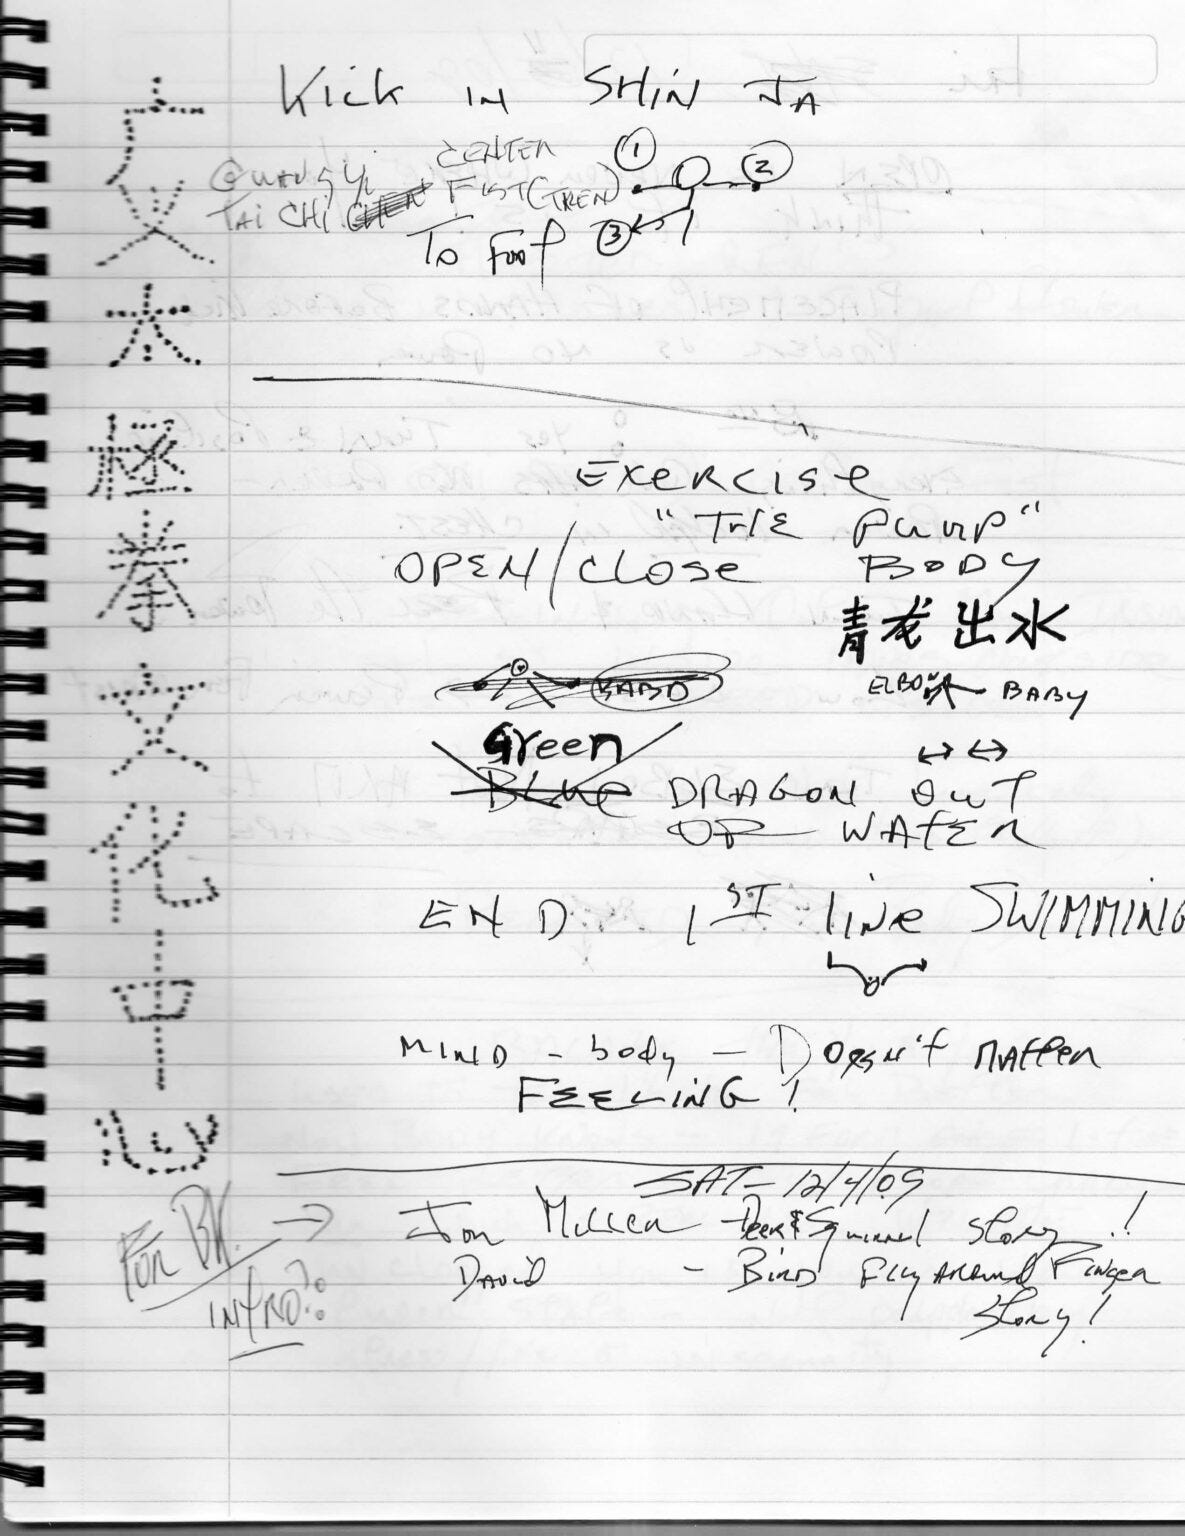 Kick IN SHIN JA
CENTER ① ②
GUANGYI FIST (TREN)
TAI CHI
TO FOOT ③
EXERCISE
"THE PUMP"
OPEN/Close BODY
青龙出水
ELBOW BABY
Green
BLUE DRAGON OUT
OF WATER
END 1ST line SWIMMING
MIND - body - Doesn't Matter
FEELING!
SAT- 12/4/09
FOR BK. → Jon Miller - Deer & Squirrel Story!
INTRO?: David - Bird Fly Around Finger
Story!
太極拳文化中心